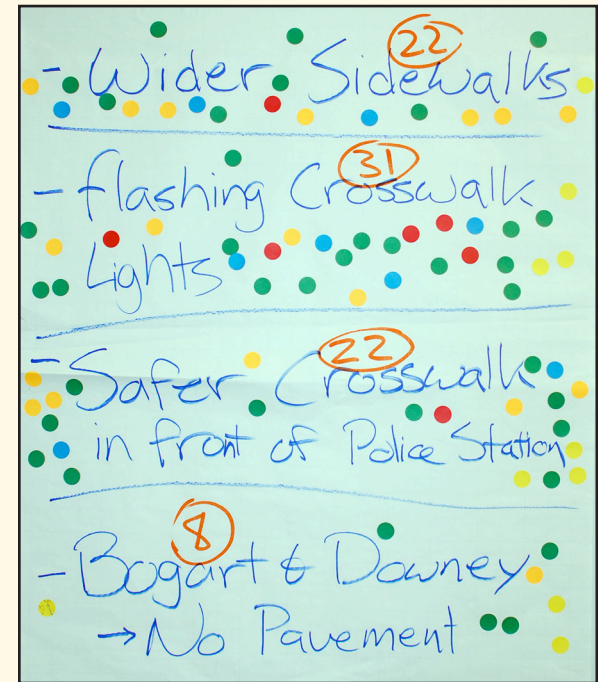 22
- Wider Sidewalks
31
- flashing Crosswalk
Lights
22
- Safer Crosswalk
in front of Police Station
8
- Bogart & Downey
→ No Pavement